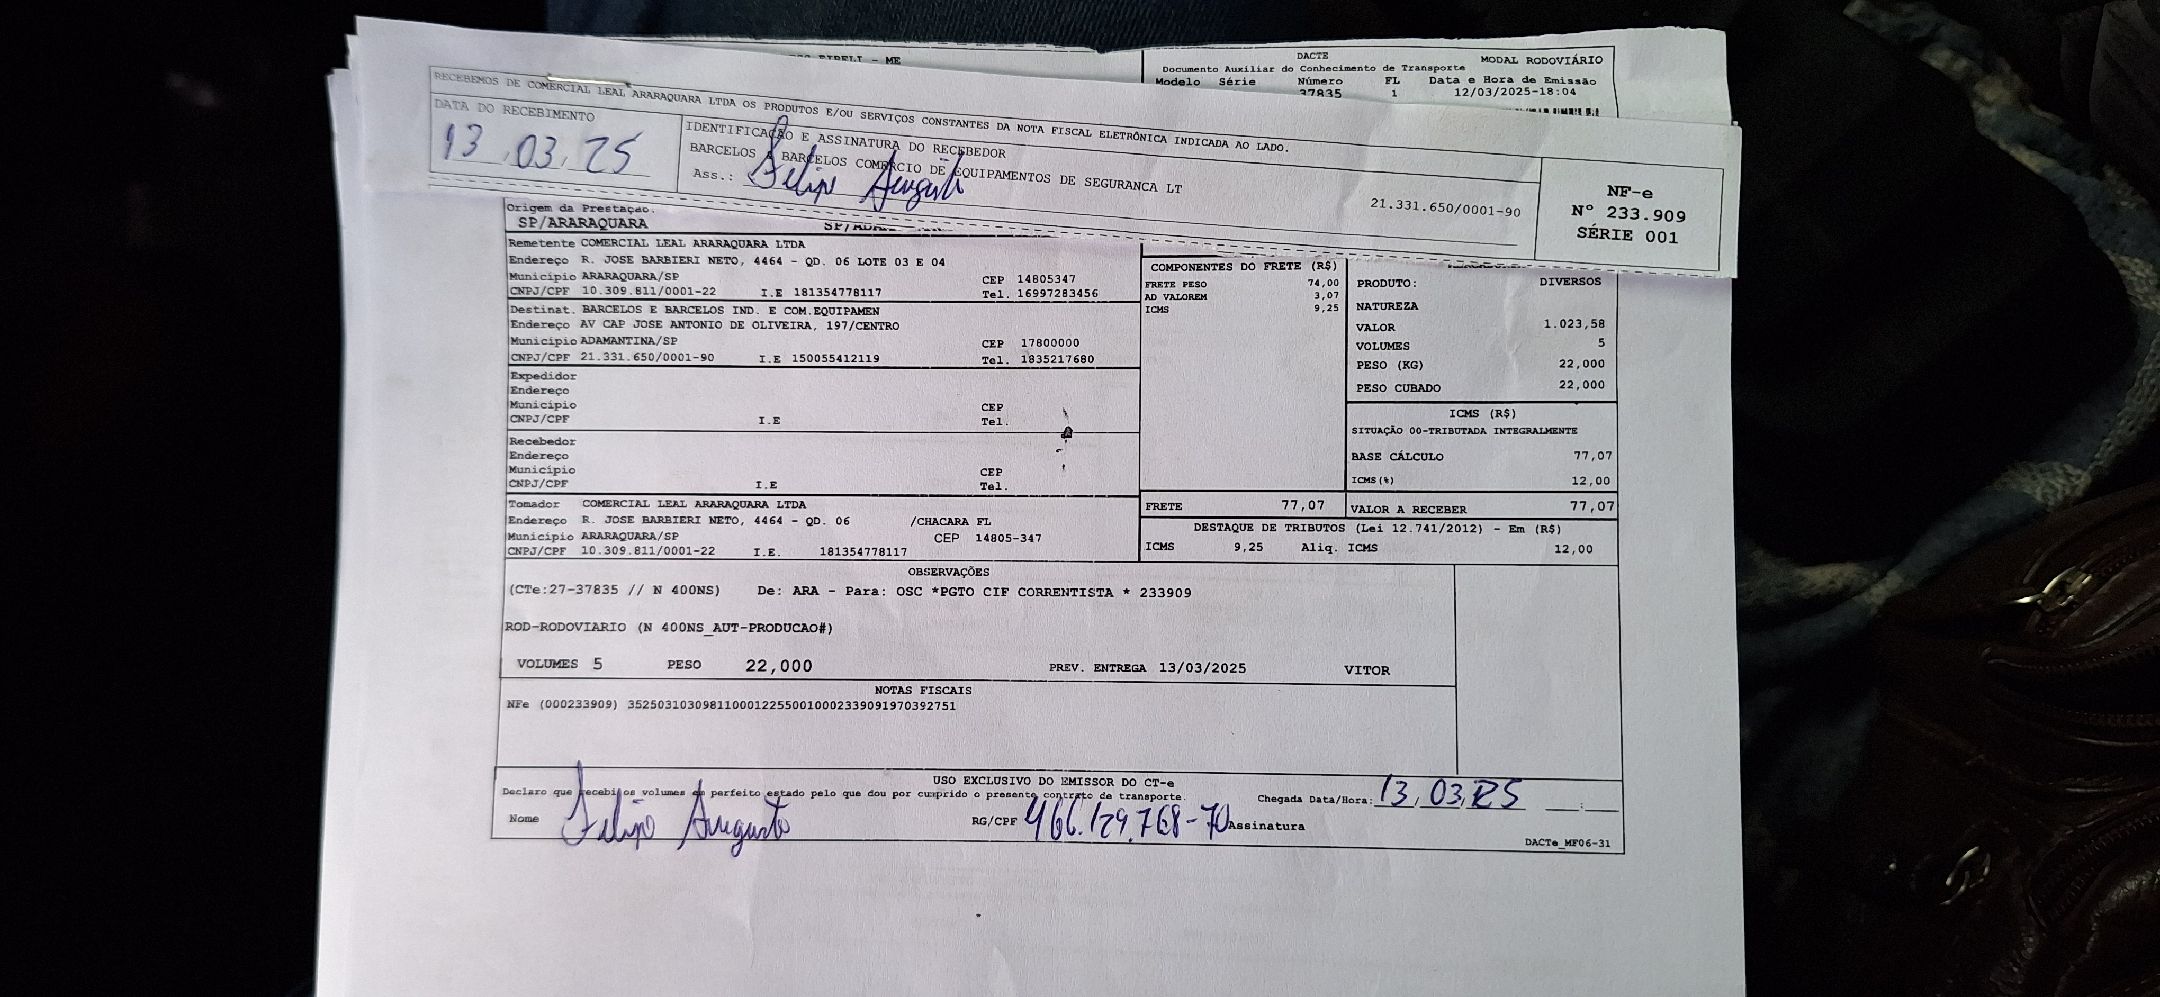 DACTE
MODAL RODOVIÁRIO
Documento Auxiliar do Conhecimento de Transporte
Modelo Série Número FL Data e Hora de Emissão
37835 1 12/03/2025-18:04
RECEBEMOS DE COMERCIAL LEAL ARARAQUARA LTDA OS PRODUTOS E/OU SERVIÇOS CONSTANTES DA NOTA FISCAL ELETRÔNICA INDICADA AO LADO.
DATA DO RECEBIMENTO
13,03,25
IDENTIFICAÇÃO E ASSINATURA DO RECEBEDOR
BARCELOS & BARCELOS COMERCIO DE EQUIPAMENTOS DE SEGURANCA LT
Ass.: Felipe Augusto
21.331.650/0001-90
NF-e
Nº 233.909
SÉRIE 001
Origem da Prestação.
SP/ARARAQUARA
Remetente COMERCIAL LEAL ARARAQUARA LTDA
Endereço R. JOSE BARBIERI NETO, 4464 - QD. 06 LOTE 03 E 04
Município ARARAQUARA/SP CEP 14805347
CNPJ/CPF 10.309.811/0001-22 I.E 181354778117 Tel. 16997283456
Destinat. BARCELOS E BARCELOS IND. E COM.EQUIPAMEN
Endereço AV CAP JOSE ANTONIO DE OLIVEIRA, 197/CENTRO
Município ADAMANTINA/SP CEP 17800000
CNPJ/CPF 21.331.650/0001-90 I.E 150055412119 Tel. 1835217680
Expedidor
Endereço
Município CEP
CNPJ/CPF I.E Tel.
Recebedor
Endereço
Município CEP
CNPJ/CPF I.E Tel.
Tomador COMERCIAL LEAL ARARAQUARA LTDA
Endereço R. JOSE BARBIERI NETO, 4464 - QD. 06 /CHACARA FL
Município ARARAQUARA/SP CEP 14805-347
CNPJ/CPF 10.309.811/0001-22 I.E. 181354778117
COMPONENTES DO FRETE (R$)
FRETE PESO 74,00
AD VALOREM 3,07
ICMS 9,25
FRETE 77,07
PRODUTO: DIVERSOS
NATUREZA
VALOR 1.023,58
VOLUMES 5
PESO (KG) 22,000
PESO CUBADO 22,000
ICMS (R$)
SITUAÇÃO 00-TRIBUTADA INTEGRALMENTE
BASE CÁLCULO 77,07
ICMS(%) 12,00
VALOR A RECEBER 77,07
DESTAQUE DE TRIBUTOS (Lei 12.741/2012) - Em (R$)
ICMS 9,25 Aliq. ICMS 12,00
OBSERVAÇÕES
(CTe:27-37835 // N 400NS) De: ARA - Para: OSC *PGTO CIF CORRENTISTA * 233909
ROD-RODOVIARIO (N 400NS_AUT-PRODUCAO#)
VOLUMES 5 PESO 22,000 PREV. ENTREGA 13/03/2025 VITOR
NOTAS FISCAIS
NFe (000233909) 35250310309811000122550010002339091970392751
USO EXCLUSIVO DO EMISSOR DO CT-e
Declaro que recebi os volumes em perfeito estado pelo que dou por cumprido o presente contrato de transporte. Chegada Data/Hora: 13,03,25 __:__
Nome Felipe Augusto RG/CPF 466.129.768-70 Assinatura
DACTe_MF06-31